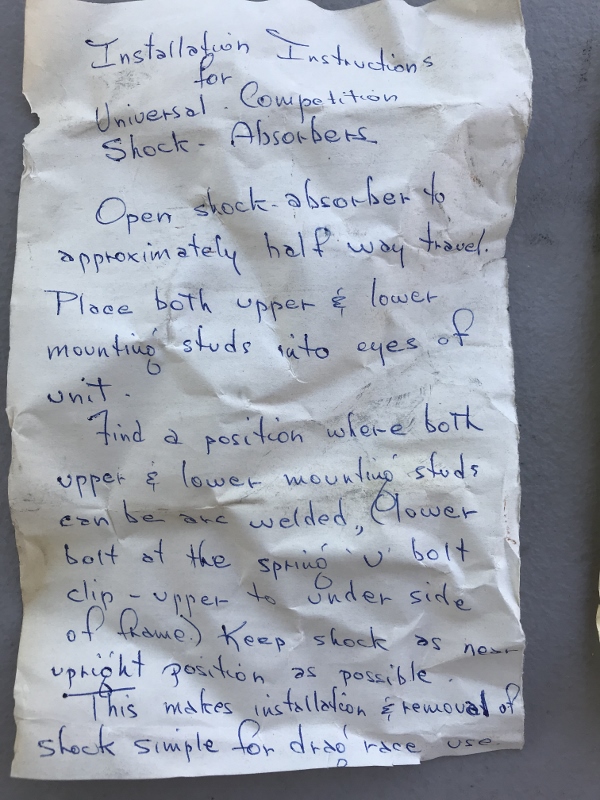 Installation Instructions
for
Universal. Competition
Shock- Absorbers
Open shock-absorber to
approximately half way travel.
Place both upper & lower
mounting studs into eyes of
unit.
Find a position where both
upper & lower mounting studs
can be arc welded, (lower
bolt at the spring 'U' bolt
clip - upper to under side
of frame.) Keep shock as near
upright position as possible.
This makes installation & removal of
shock simple for drag race use